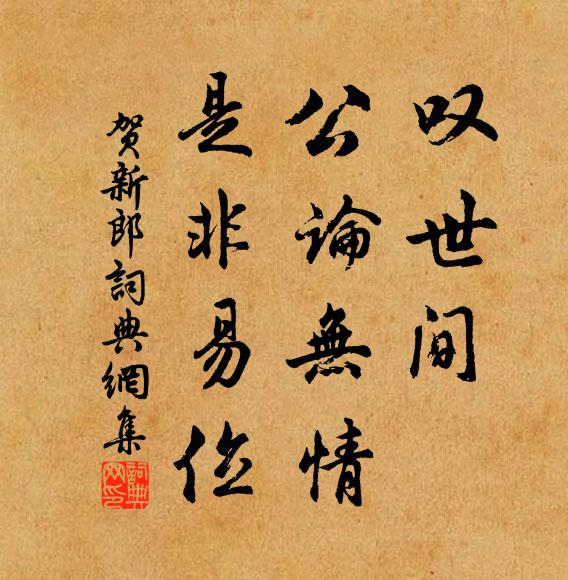 叹世间
公論無情
是非易位
贺新郎詞典網集
詞典
网印